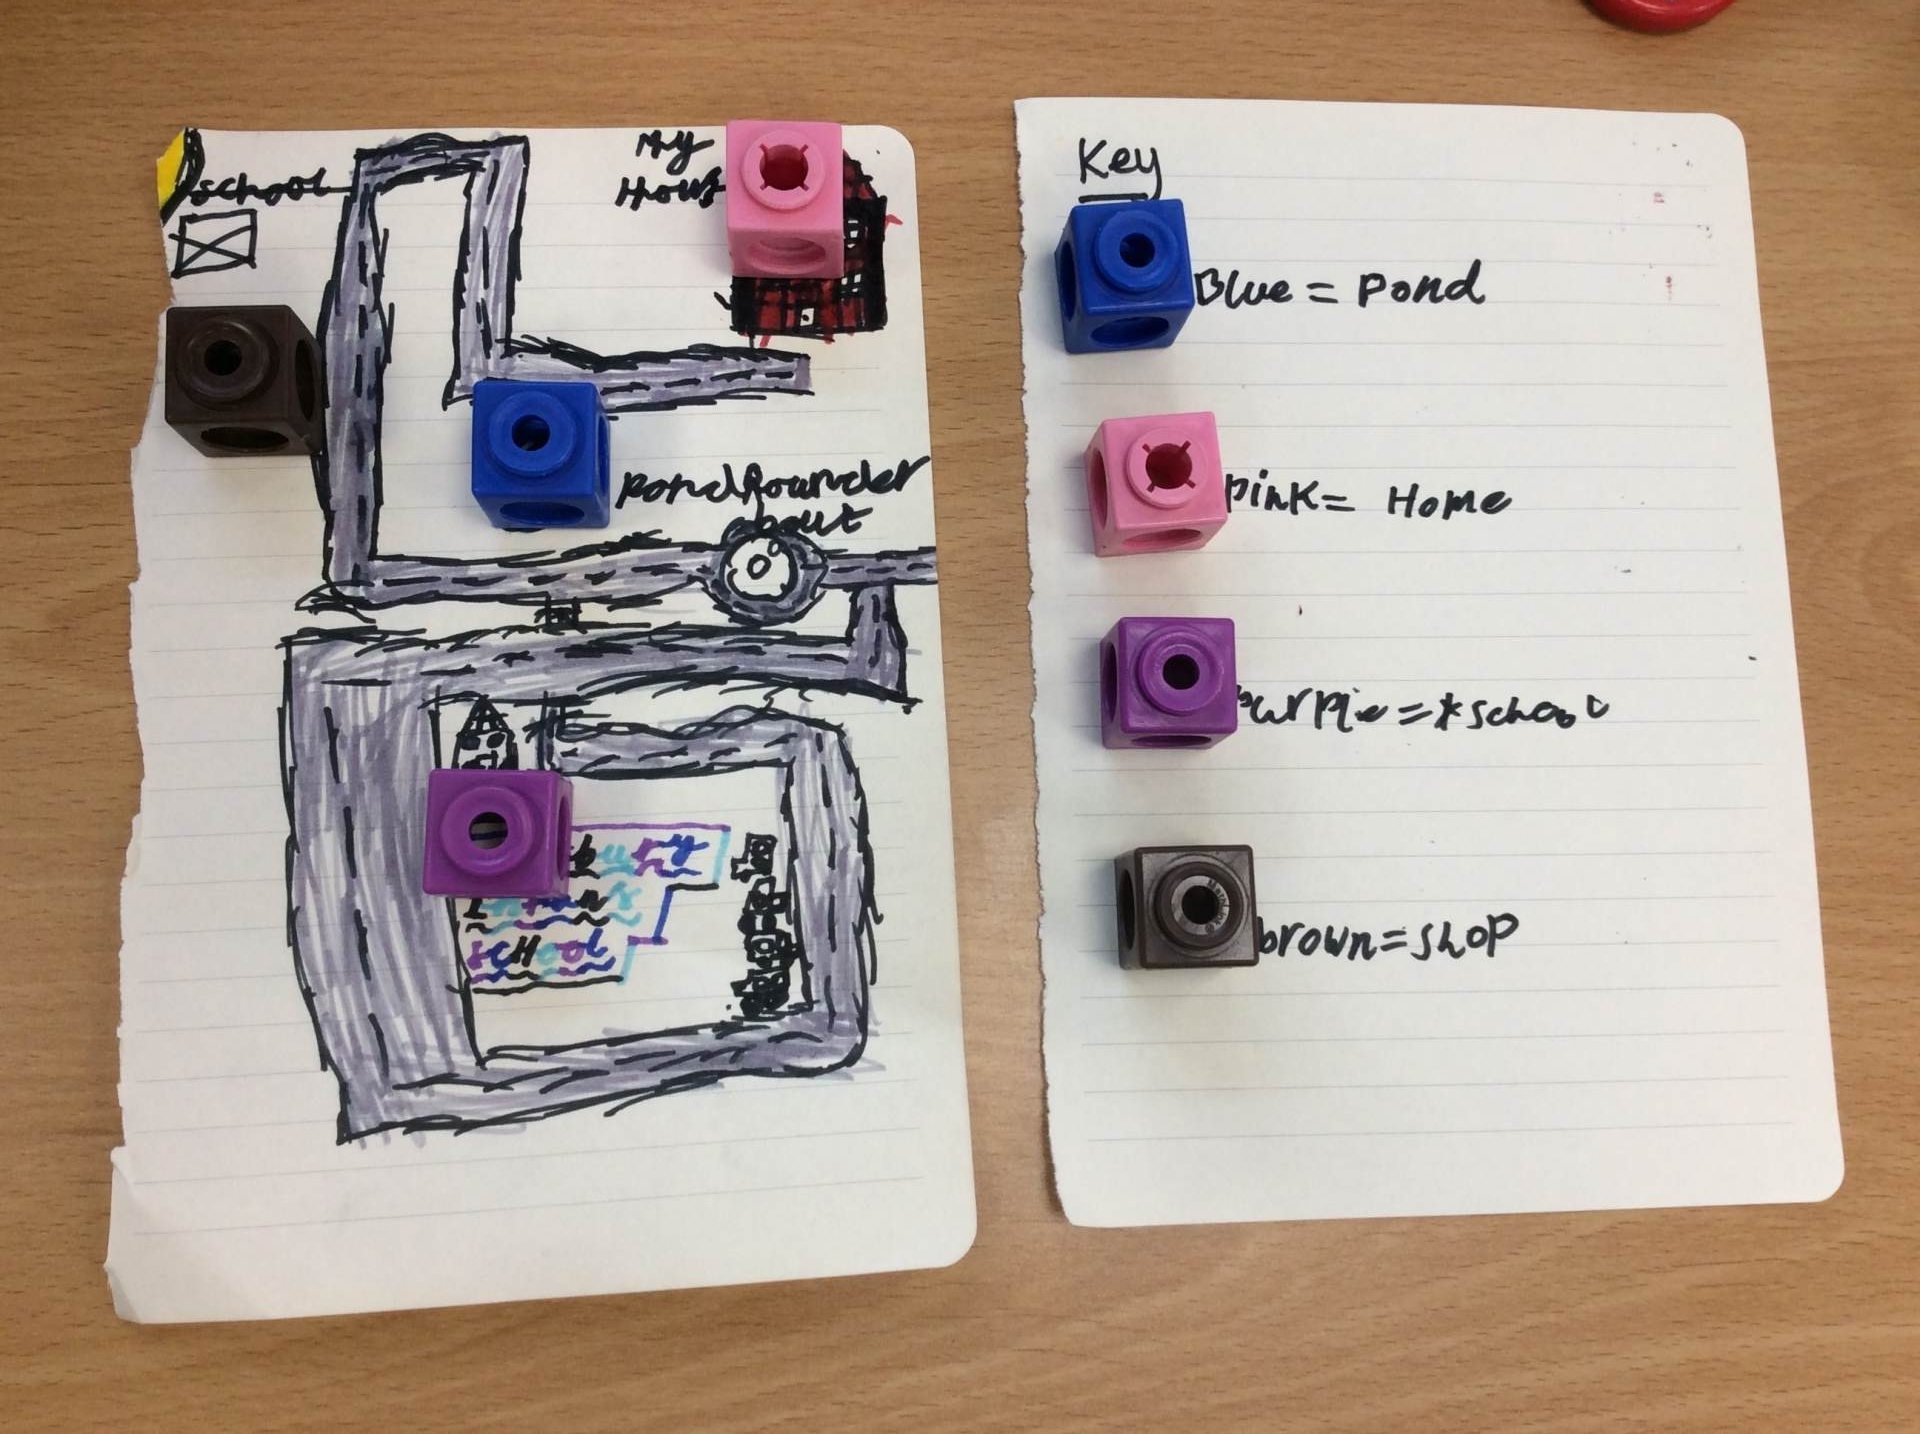 school
My
Hous
pond Rounder
about
bury
school
Key
Blue = pond
pink = Home
purple = *school
brown = shop